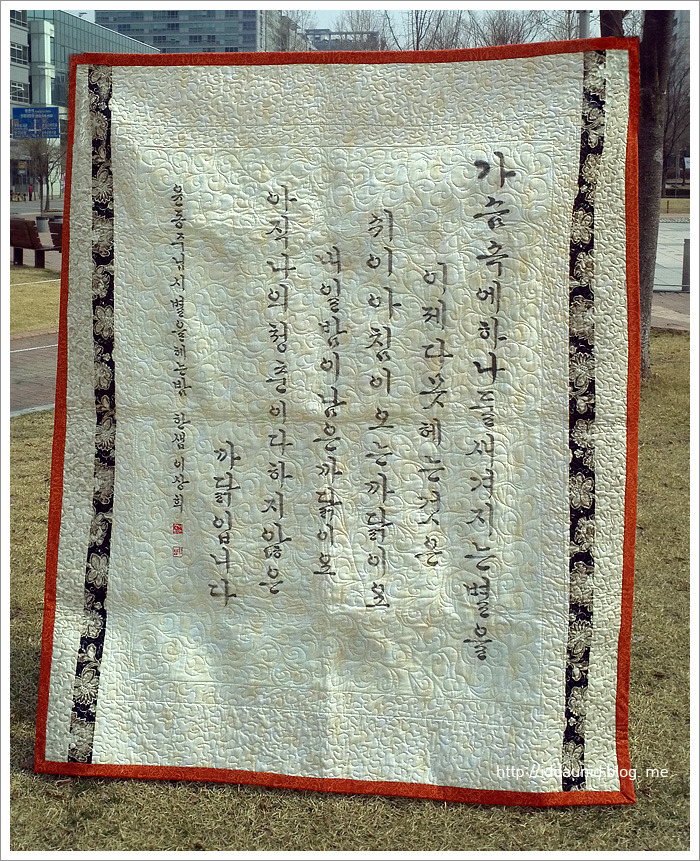 가슴속에하나둘새겨지는별을
이제다못헤는것은
쉬이아침이오는까닭이오
내일밤이남은까닭이오
아직나의청춘이다하지않은
까닭입니다
윤동주님시별을헤는밤 한샘이상희